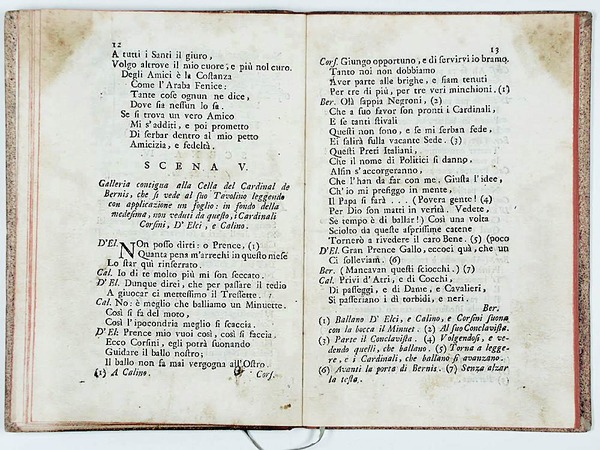 12
A tutti i Santi il giuro,
Volgo altrove il mio cuore, e più nol curo.
Degli Amici è la Costanza
Come l'Araba Fenice:
Tante cose ognun ne dice,
Dove sia nessun lo sa.
Se si trova un vero Amico
Mi s'additi, e poi prometto
Di serbar dentro al mio petto
Amicizia, e fedeltà.
SCENA V.
Galleria contigua alla Cella del Cardinal de
Bernis, che si vede al suo Tavolino leggendo
con applicazione un foglio: in fondo della
medesima, non veduti da questo, i Cardinali
Corsini, D' Elci, e Calino.
D'El. NOn posso dirti: o Prence, (1)
Quanta pena m'arrechi in questo mese
Lo star quì rinserrato.
Cal. Io di te molto più mi son seccato.
D' El. Dunque direi, che per passare il tedio
A giuocar ci mettessimo il Tressette.
Cal. No: è meglio che balliamo un Minuette.
Così si fa del moto,
Così l'ipocondria meglio si scaccia.
D'El. Prence mio vuoi così, così si faccia.
Ecco Corsini, egli potrà suonando
Guidare il ballo nostro;
Il ballo non fa mai vergogna all'Ostro.
(1) A Calino. Cors.
13
Cors. Giungo opportuno, e di servirvi io bramo.
Tanto noi non dobbiamo
Aver parte alle brighe, e siam tenuti
Per tre di più, per tre veri minchioni. (1)
Ber. Olà sappia Negroni, (2)
Che a suo favor son pronti i Cardinali,
E se tanti stivali
Questi non sono, e se mi serban fede,
Ei salirà sulla vacante Sede. (3)
Questi Preti Italiani,
Che il nome di Politici si danno,
Alfin s'accorgeranno,
Che l'han da far con me. Giusta l'idee,
Ch' io mi prefiggo in mente,
Il Papa si farà . . . (Povera gente! (4)
Per Dio son matti in verità. Vedete,
Se tempo è di ballar!) Così una volta
Sciolto da queste asprissime catene
Tornerò a rivedere il caro Bene. (5) (poco
D'El. Gran Prence Gallo, eccoci quà, che un
Ci solleviam. (6)
Ber. (Mancavan questi sciocchi.) (7)
Cal. Privi d'Atri, e di Cocchi,
Di passeggi, e di Dame, e Cavalieri,
Si passeriano i dì torbidi, e neri.
Ber.
(1) Ballano D' Elci, e Calino, e Corsini suona
con la bocca il Minuet. (2) Al suo Conclavista.
(3) Parte il Conclavista. (4) Volgendosi, e ve-
dendo quelli, che ballano. (5) Torna a legge-
re, e i Cardinali, che ballano si avanzano.
(6) Avanti la porta di Bernis. (7) Senza alzar
la testa.